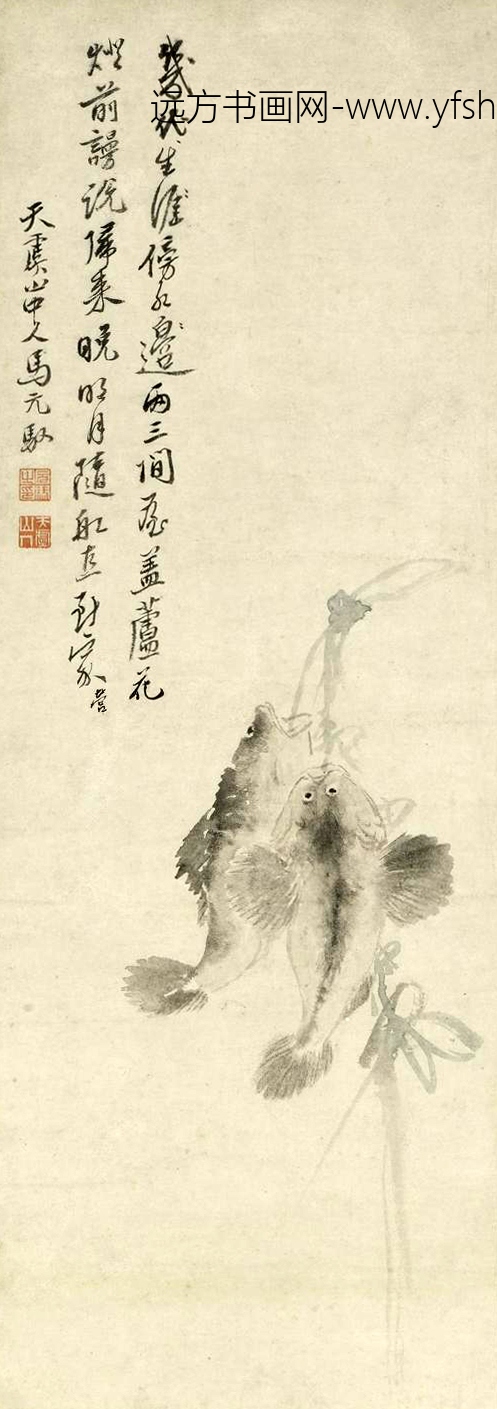 远方书画网-www.yfsh
幾代生涯傍水邊兩三間屋蓋蘆花
燈前謾說歸來晚明月隨船直到家
天虞山中人馬元馭
天虞山人